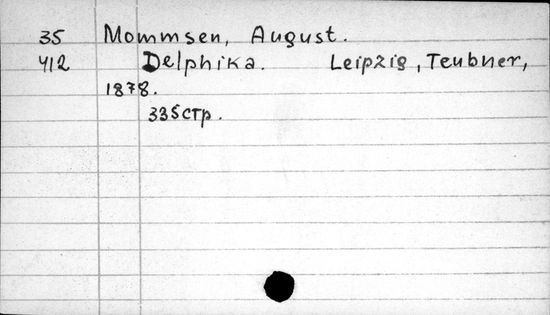 35 Mommsen, August.
412 Delphika. Leipzig, Teubner,
1878.
335стр.